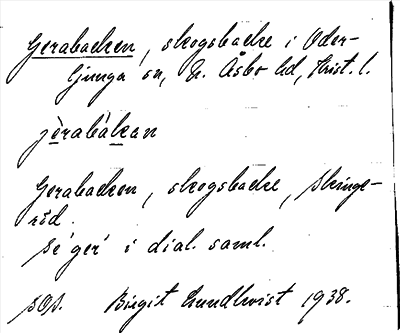 Gerabacken, skogsbacke i Oder-
ljunga sn, N. Åsbo hd, Krist. l.
jèrabákan
Gerabacken, skogsbacke, Skinge-
röd.
se 'ger' i dial. saml.
Birgit Lundkvist 1938.